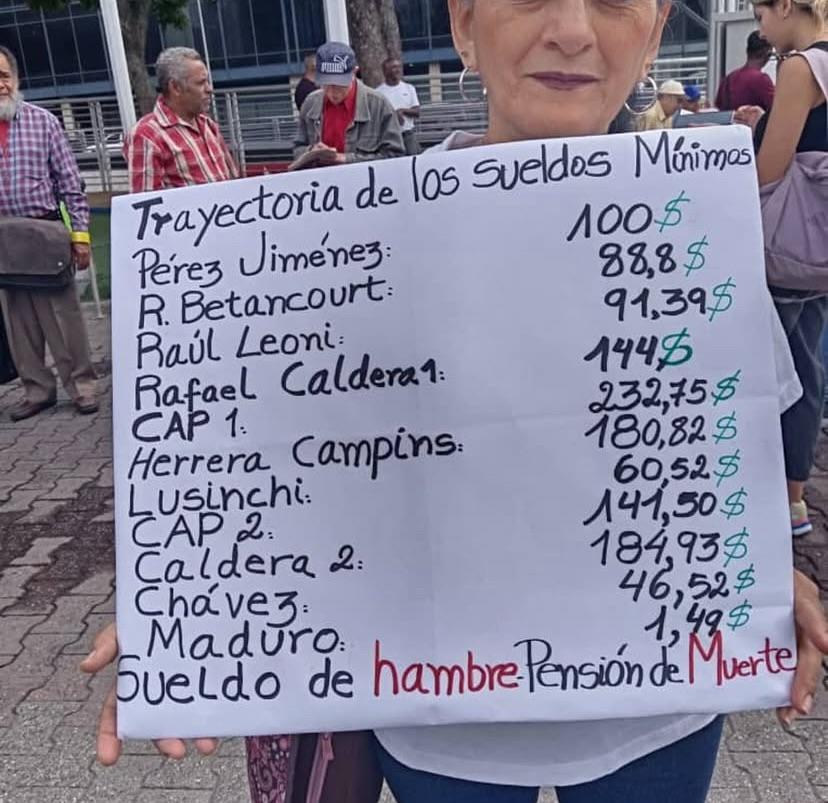 Trayectoria de los sueldos Mínimos
Pérez Jiménez: 100$
R. Betancourt: 88,8$
Raúl Leoni: 91,39$
Rafael Caldera 1: 144$
CAP 1: 232,75$
Herrera Campins: 180,82$
Lusinchi: 60,52$
CAP 2: 141,50$
Caldera 2: 184,93$
Chávez: 46,52$
Maduro: 1,49$
Sueldo de hambre-Pensión de Muerte
PUMA